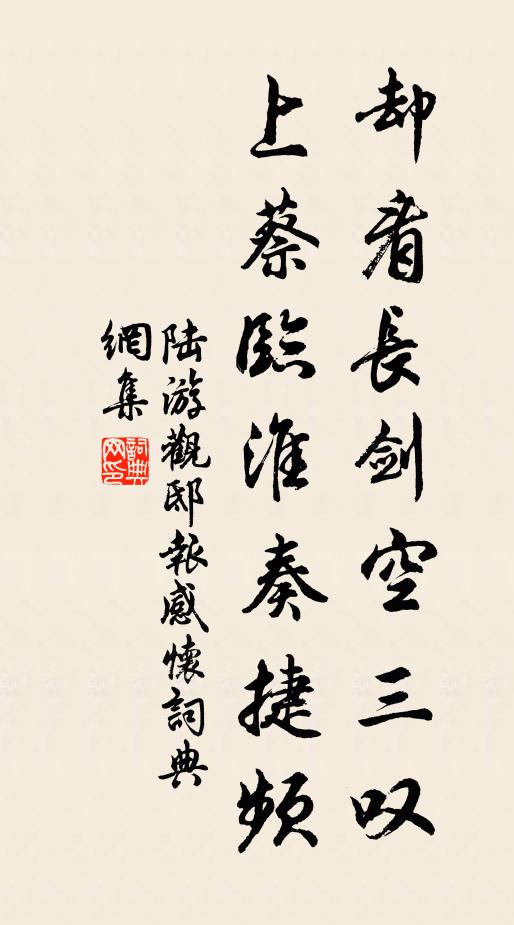 却看長劍空三叹
上蔡臨淮奏捷頻
陆游觀邸報感懷詞典
網集
詞典網印